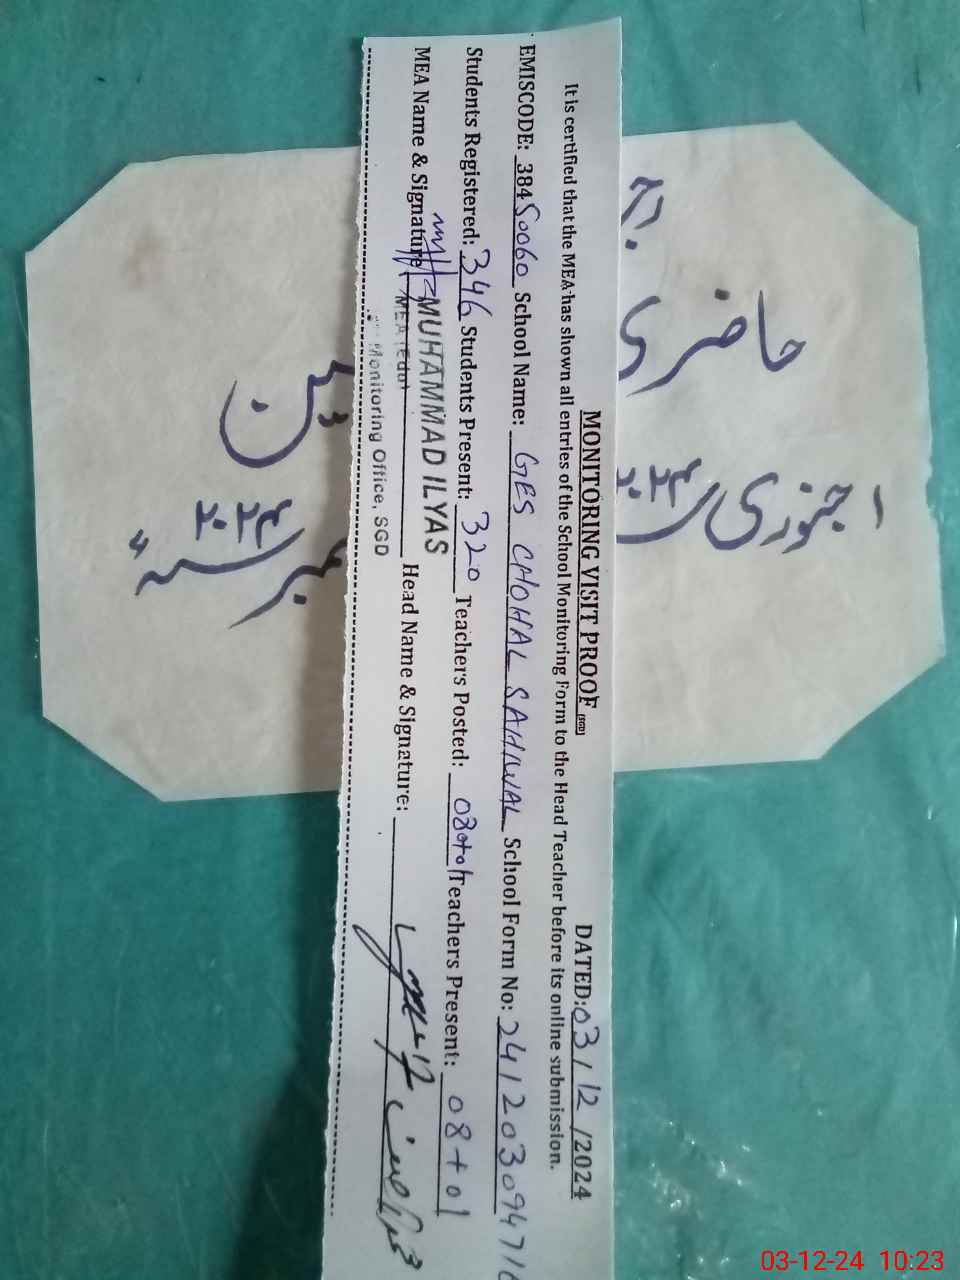 MONITORING VISIT PROOF [SGD] DATED: 03/12/2024
It is certified that the MEA has shown all entries of the School Monitoring Form to the Head Teacher before its online submission.
EMISCODE: 38450060 School Name: GES CHOHAL SAHIWAL School Form No: 2412030947
Students Registered: 346 Students Present: 320 Teachers Posted: 08+01 Teachers Present: 08+01
MEA Name & Signature MUHAMMAD ILYAS Head Name & Signature:
MEA (Edu)
Monitoring Office, SGD
حاضری
جنوری
03-12-24 10:23